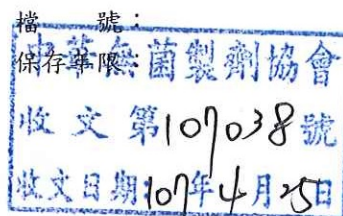 檔　　　號：
保存年限：
中華無菌製劑協會
收文第107038號
收文日期:107年4月25日